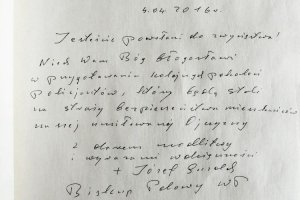 5.04.2016r.
Jesteście powołani do zwycięstwa!
Niech Wam Bóg błogosławi
w przygotowaniu kolejnych pokoleń
policjantów, którzy będą stali
na straży bezpieczeństwa mieszkańców
naszej umiłowanej Ojczyzny
z darem modlitwy
i wyrazami wdzięczności
+ Józef Guzdek
Biskup Polowy WP